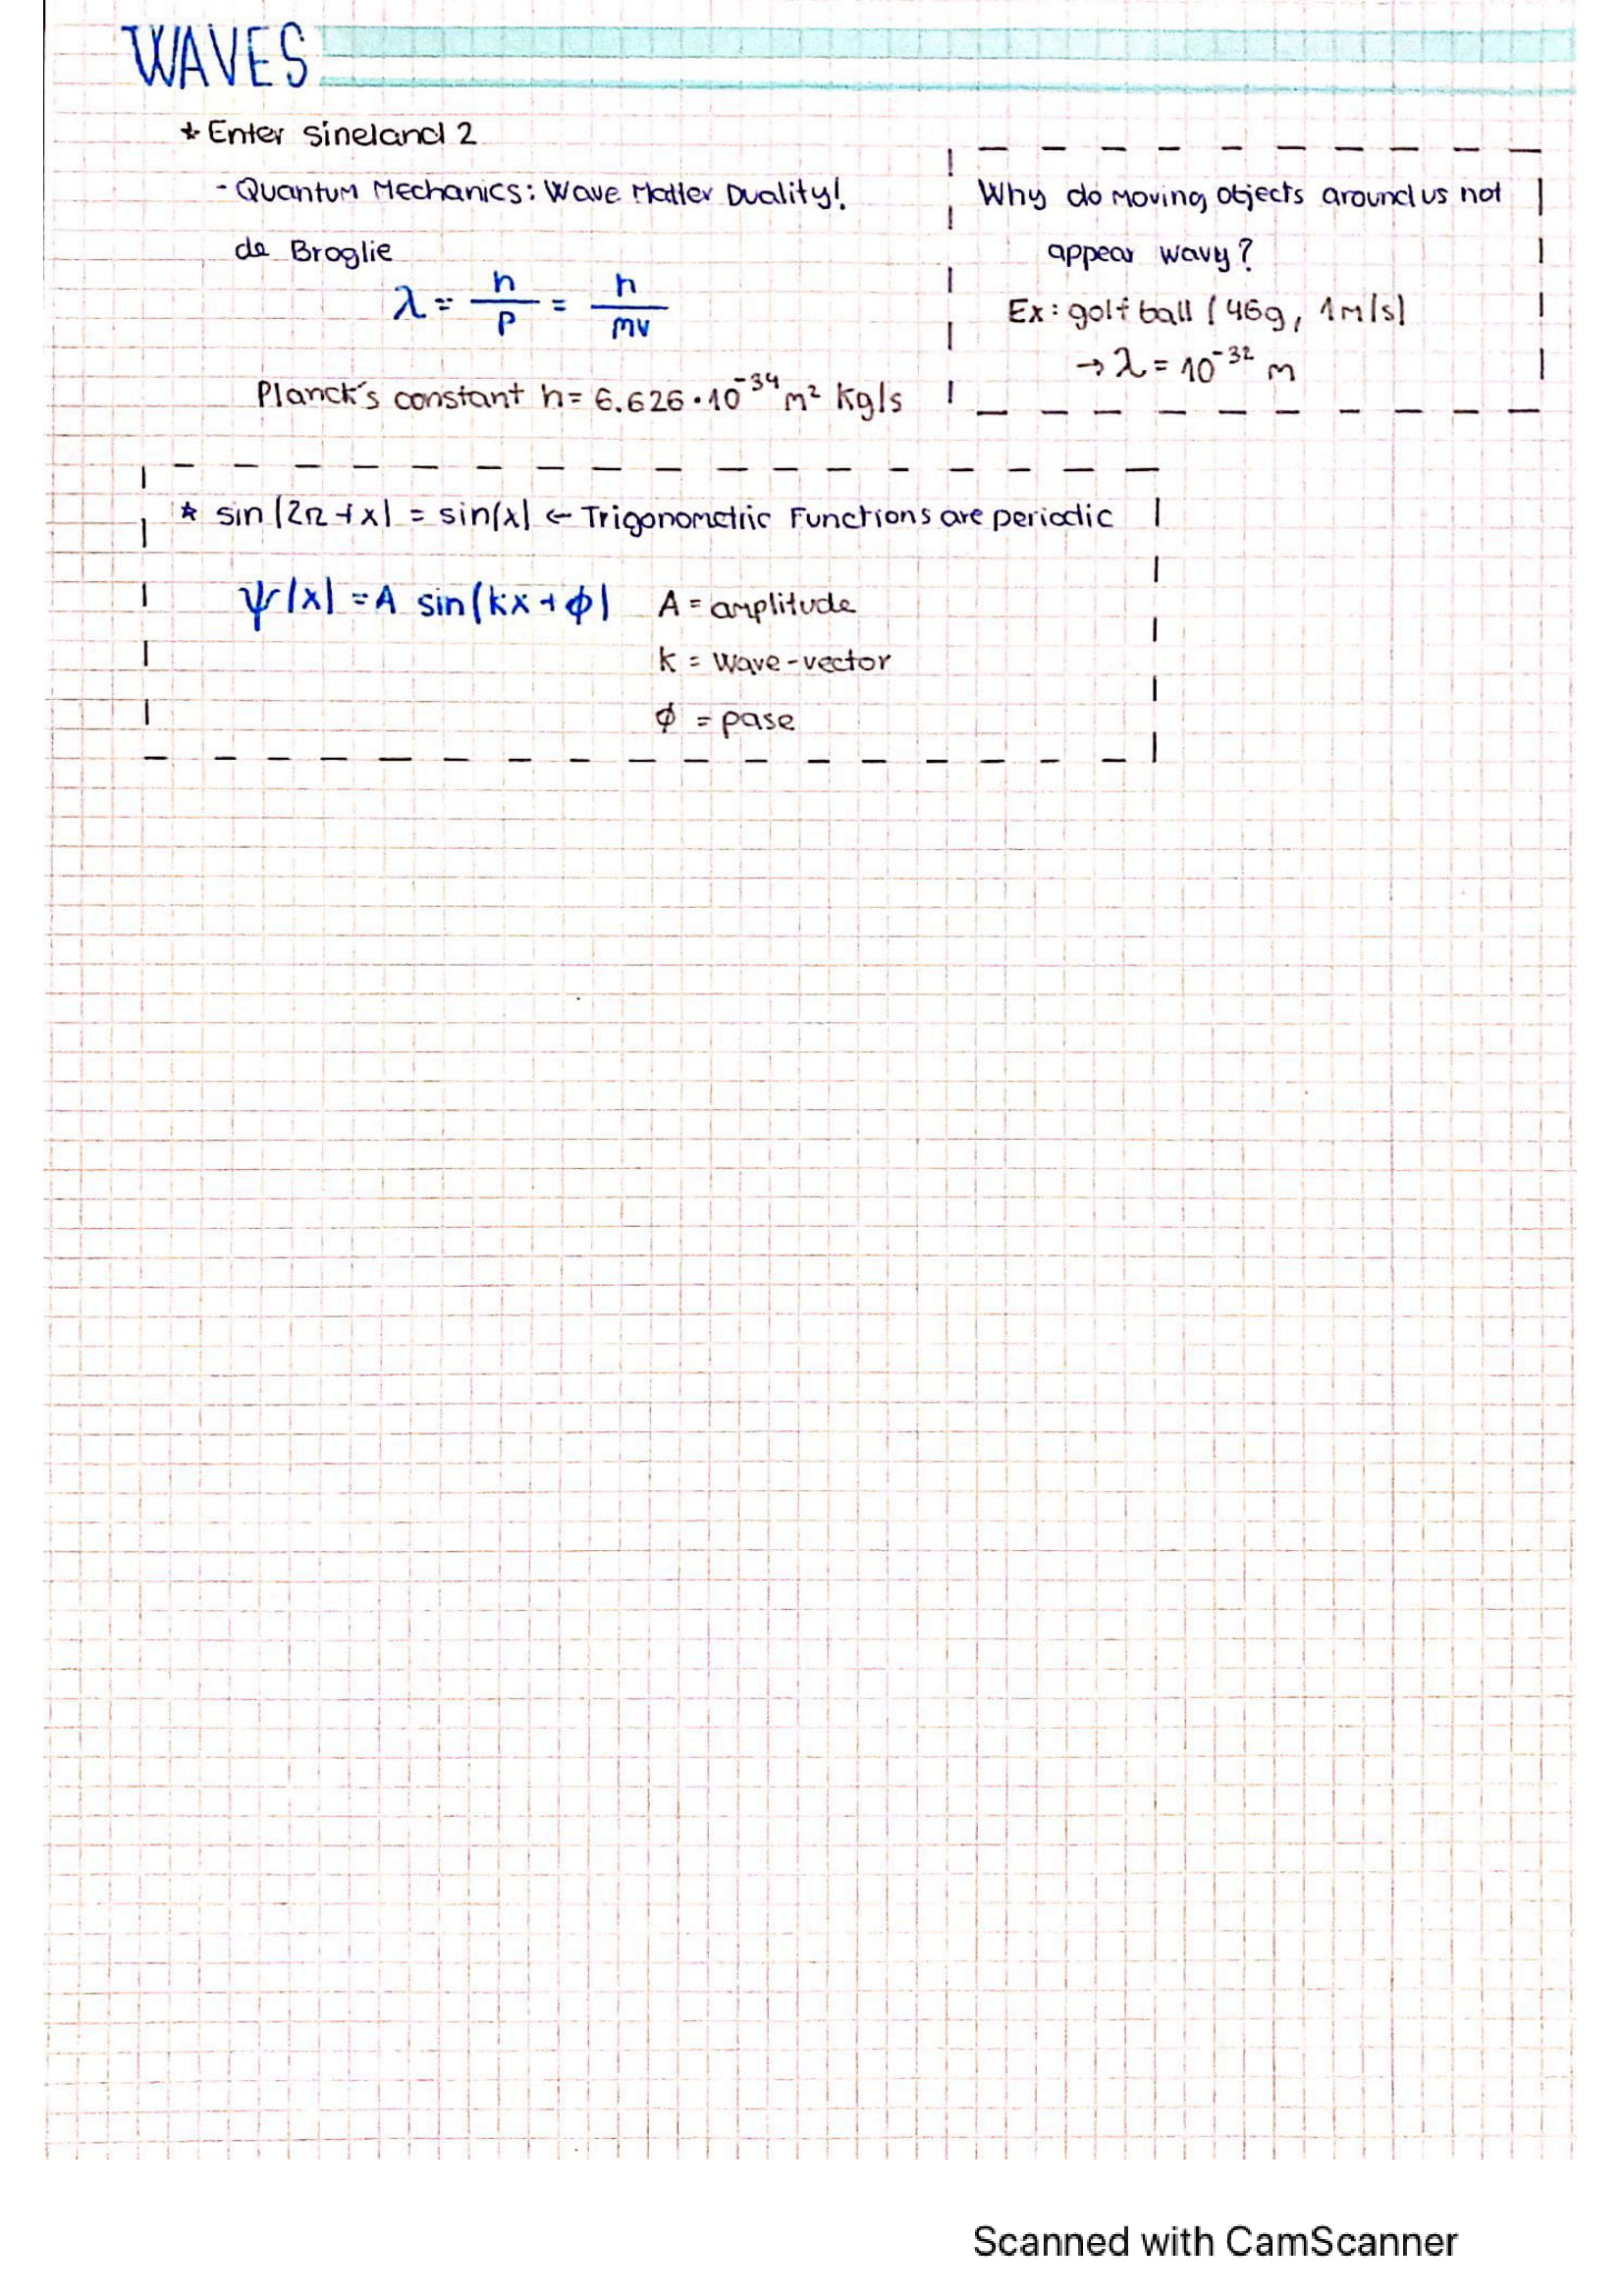 WAVES
* Enter sineland 2
- Quantum Mechanics: Wave Matter Duality!
de Broglie
λ = h/p = h/mv
Planck's constant h = 6.626 · 10⁻³⁴ m² kg/s
Why do moving objects around us not
appear wavy?
Ex: golf ball (46g, 1m/s)
→ λ = 10⁻³² m
* sin(2π + x) = sin(x) ← Trigonometric Functions are periodic
ψ(x) = A sin(kx + ϕ)
A = amplitude
k = wave-vector
ϕ = pase
Scanned with CamScanner